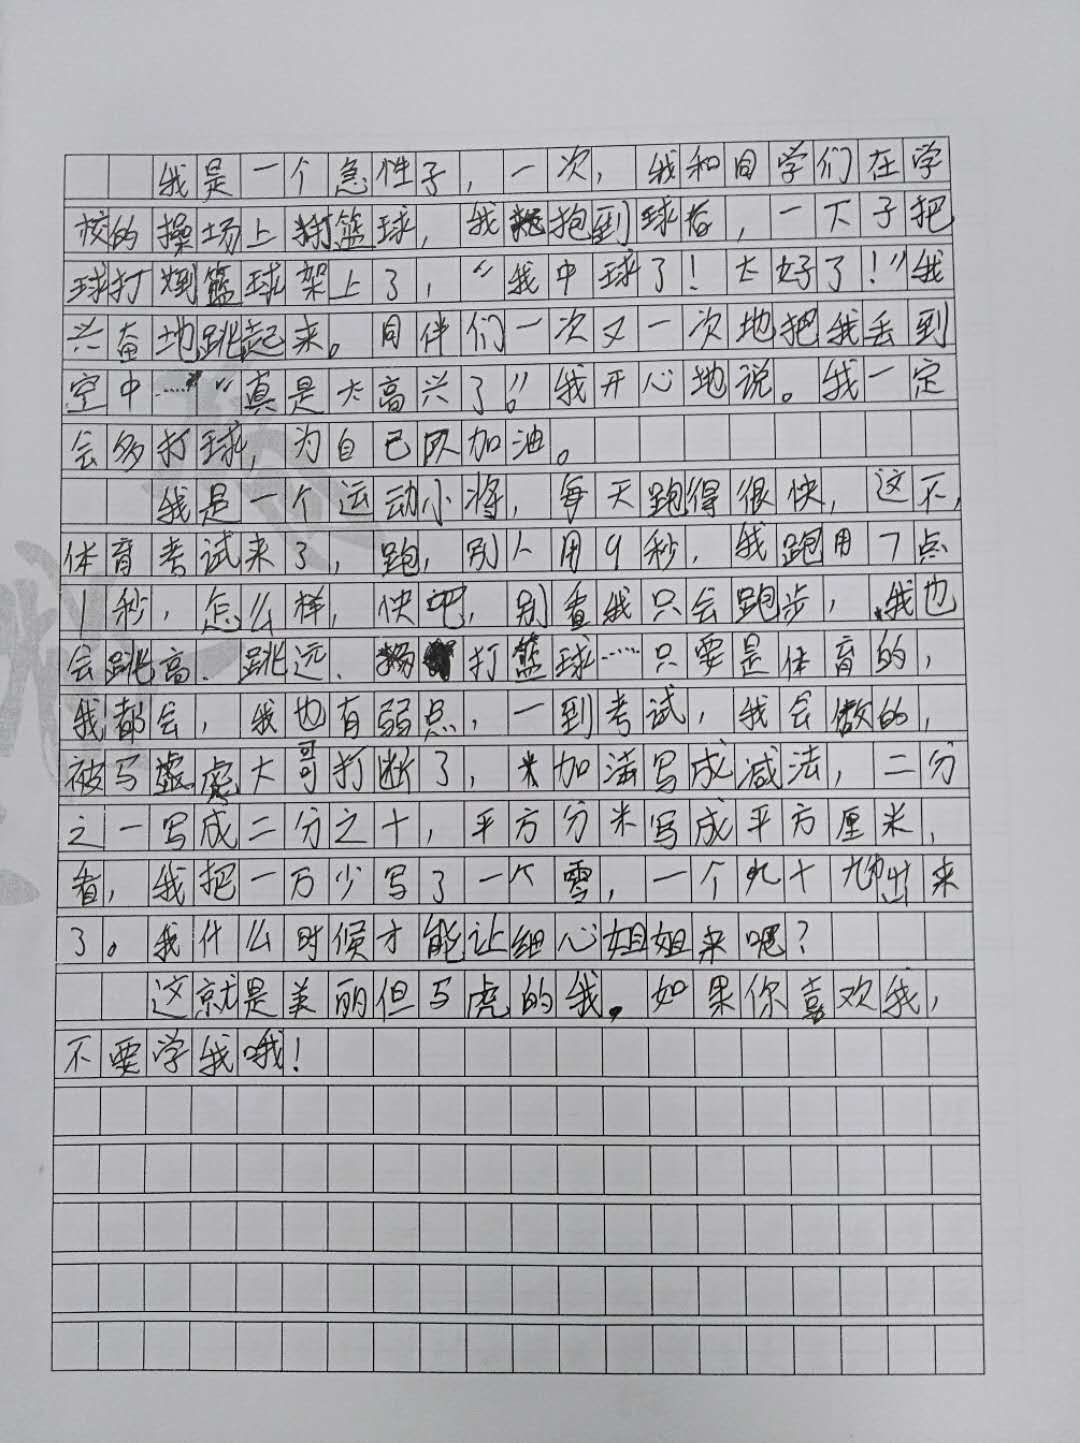 我是一个急性子，一次，我和同学们在学
校的操场上打篮球，我抱到球后，一下子把
球打到篮球架上了，“我中球了！太好了！”我
兴奋地跳起来。同伴们一次又一次地把我丢到
空中……“真是太高兴了！”我开心地说。我一定
会多打球，为自己队加油。
我是一个运动小将，每天跑得很快，这不，
体育考试来了，跑，别人用9秒，我跑用7点
1秒，怎么样，快吧，别看我只会跑步，我也
会跳高、跳远、打篮球……只要是体育的，
我都会，我也有弱点，一到考试，我会做的，
被马虚虎大哥打断了，米加法写成减法，二分
之一写成二分之十，平方分米写成平方厘米，
看，我把一万少写了一个零，一个九十九出来
了。我什么时候才能让细心姐姐来呢？
这就是美丽但马虎的我。如果你喜欢我，
不要学我哦！